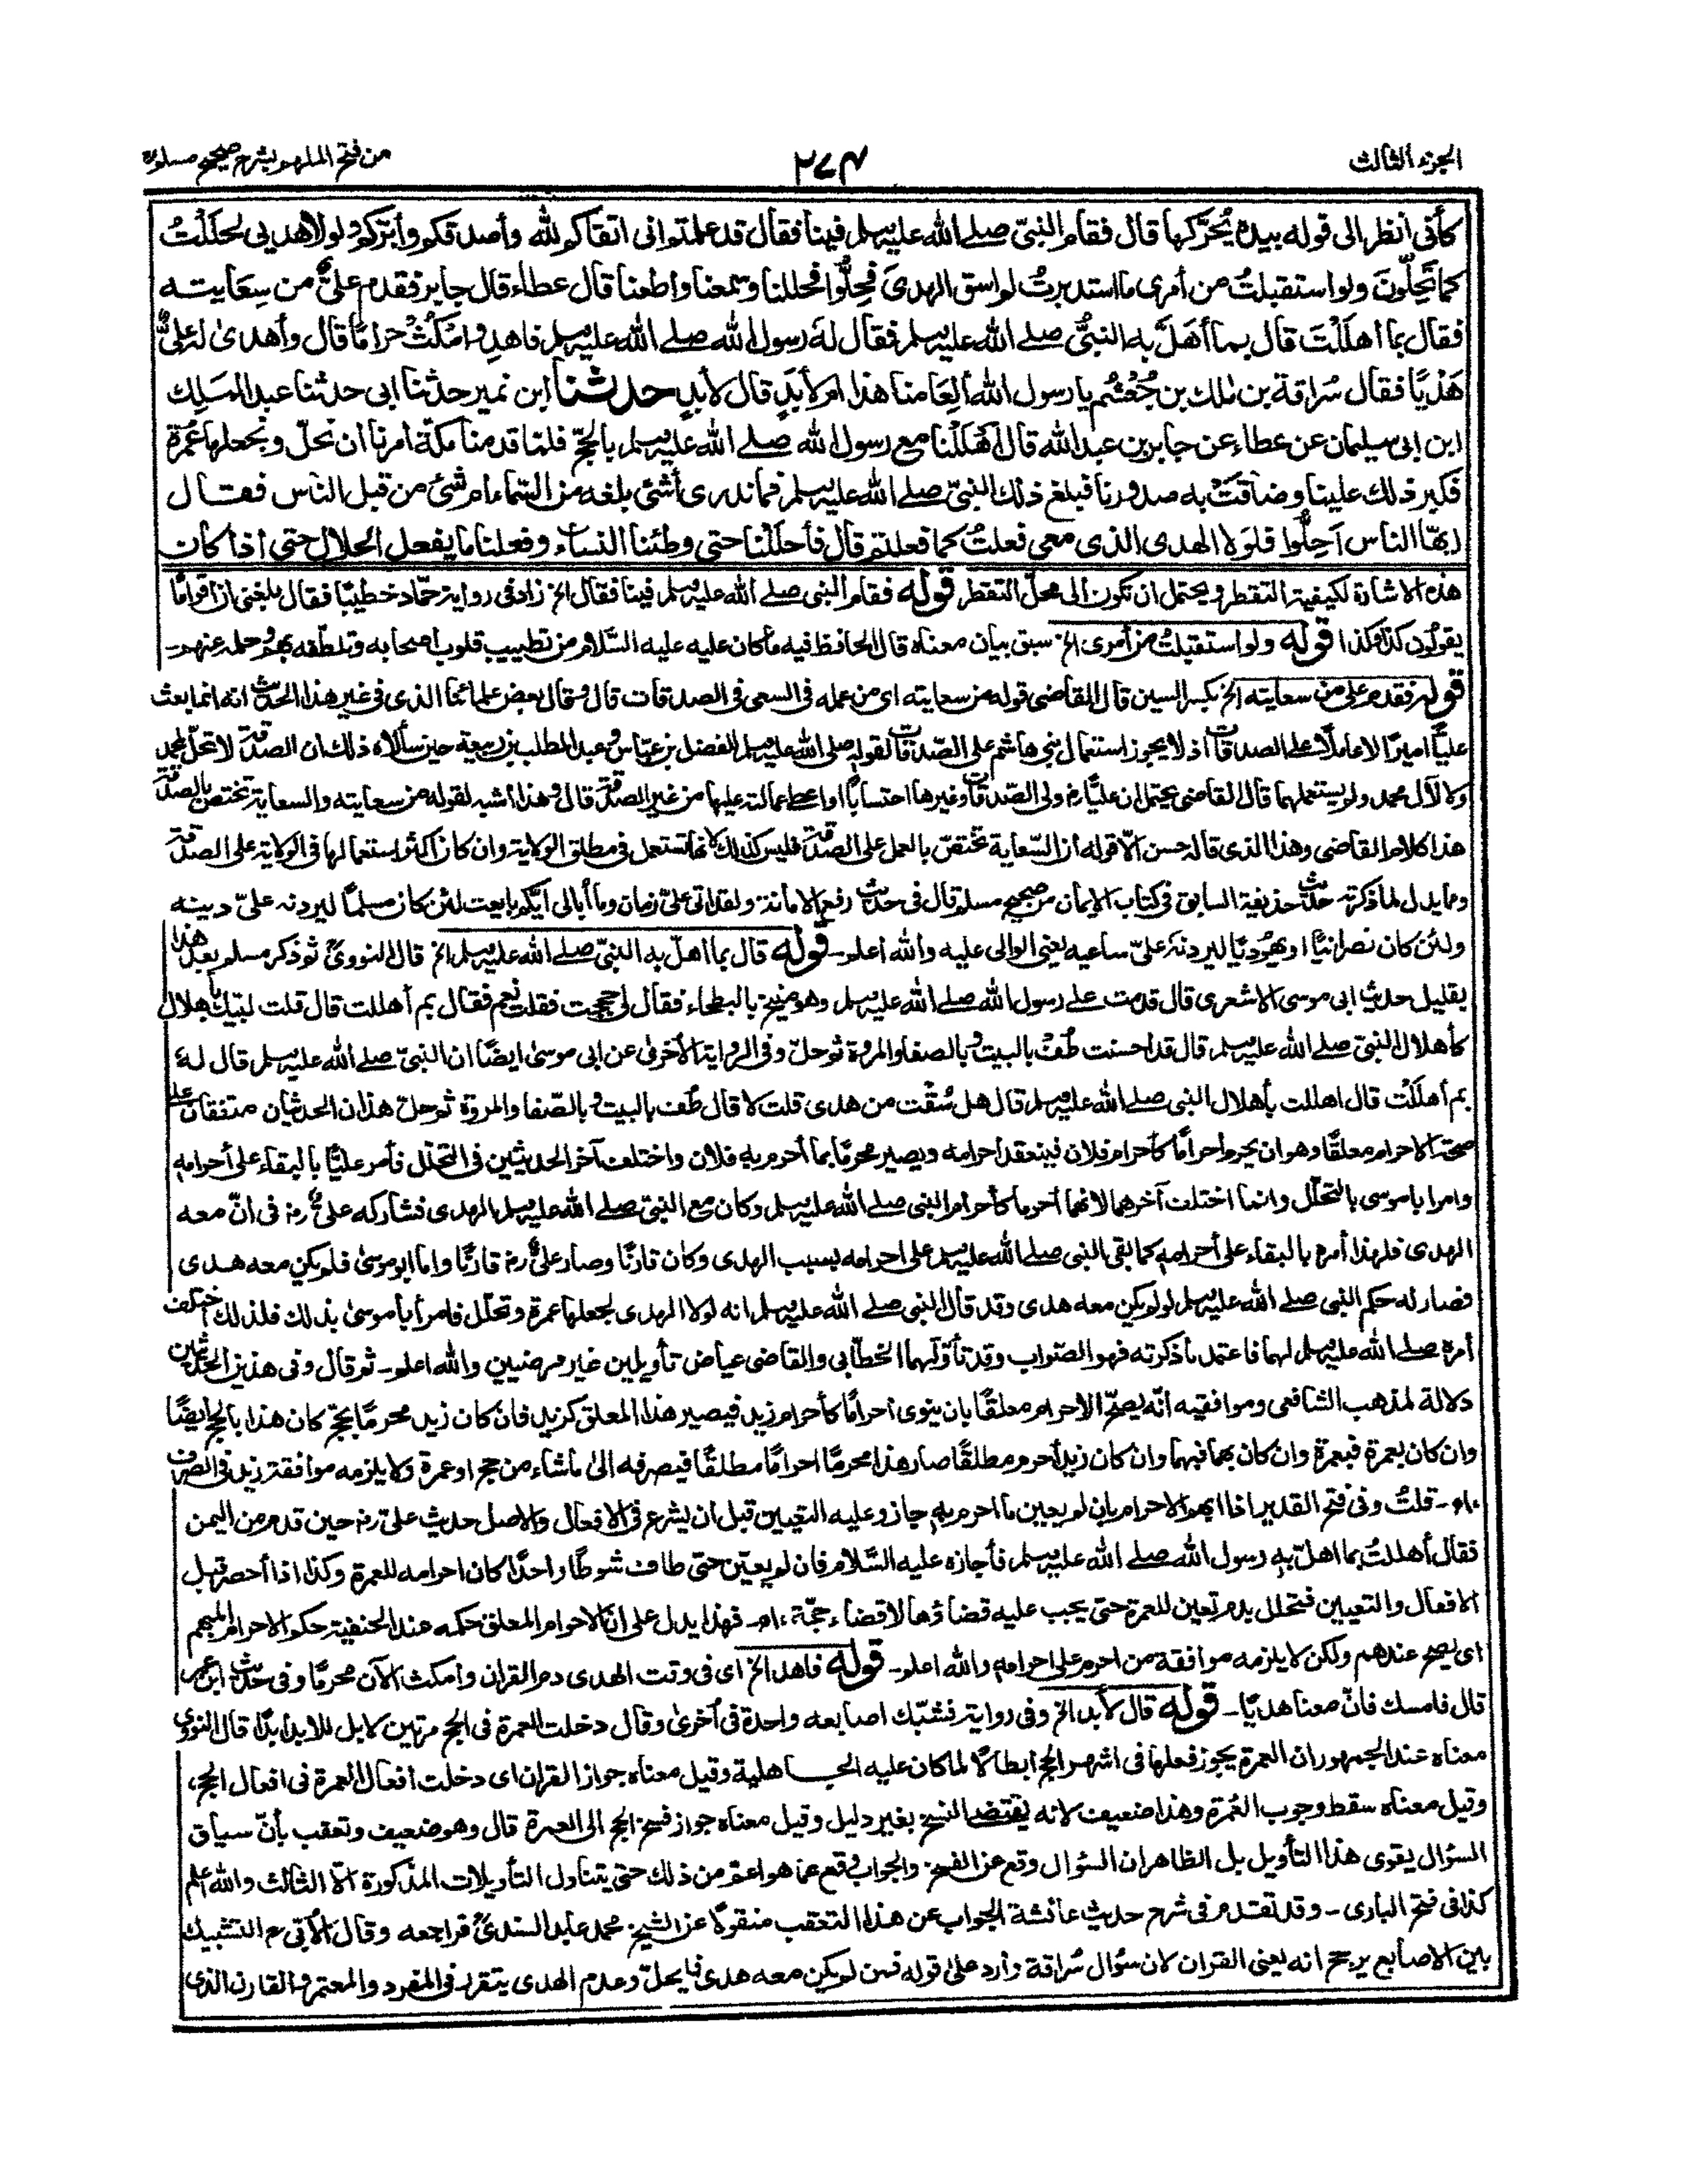 الجزء الثالث
٢٧٤
من فتح الملهم بشرح صحيح مسلم
كأني أنظر الى قوله بيده يُحَرِّكها قال فقام النبيّ صلے الله عليه وسلم فينا فقال قد علمتم اني اتقاكم لله وأصدقكم وأبرّكم ولولا هديي لحَلَلْتُ
كما تَحِلّونَ ولو استقبلتُ من أمرى ما استدبرتُ لم اسق الهدىَ فحِلُّوا فحللنا وسمعنا وأطعنا قال عطاء قال جابر فقدم علىٌّ من سِعَايته
فقال بما أهللْتَ قال بما أهَلَّ به النبيُّ صلے الله عليه وسلم فقال له رسول الله صلے الله عليه وسلم فاهدِ وامكُثْ حرامًا قال وأهدىٰ له علىٌّ
هَدْيًا فقال سُراقة بن مٰلك بن جُعْشُم يا رسول الله ألِعَامنا هذا ام لأبدٍ قال لأبدٍ حدثنا ابن نمير حدثنا ابى حدثنا عبد الملك
ابن ابى سليمان عن عطاء عن جابر بن عبد الله قال اَهْلَلْنا مع رسول الله صلے الله عليه وسلم بالحجّ فلما قدمنا مكّة أمرنا أن نحلّ ونجعلها عُمرة
فكبر ذلك علينا وضاقتْ به صدورنا فبلغ ذلك النبيّ صلے الله عليه وسلم فما ندرى أشئ بلغه من السّماء ام شئ من قبل الناس فقال
ايهّا الناس اَحِلُّوا فلَولا الهدى الذى معى فعلتُ كما فعلتم قال فأحلَلْنا حتى وطئنا النساء وفعلنا ما يفعل الحلال حتى اذا كان
هذه الاشارة لكيفية التقطر ويحتمل ان تكون الى محلّ التقطر قوله فقام النبى صلے الله عليه وسلم فينا فقال الخ زاد فى رواية حمّاد خطيبًا فقال بلغنى ان اقوامًا
يقولون كذا وكذا قوله ولو استقبلتُ من أمرى الخ سبق بيان معناه قال الحافظ فيه ما كان عليه عليه السّلام من تطييب قلوب اصحابه وتلطّفه بهم وحلمه عنهم -
قوله فقدم على من سعايته الخ بكسر السين قال القاضى قوله من سعايته اى من عمله فى السعى فى الصدقات قال وقال بعض علمائنا الذى فى غير هذا الحديث انه انما بعث
عليًّا اميرًا لا عاملًا على الصدقات اذ لا يجوز استعمال بنى هاشم على الصّدقات لقوله صلى الله عليه وسلم للفضل بن عبّاس وعبد المطلب بن ربيعة حين سألاه ذلك ان الصدقة لا تحلّ لمحمد
ولا لآل محمد ولم يستعملهما قال القاضى يحتمل ان عليًّا رض ولى الصّدقات وغيرها احتسابًا او اعطى عمالته عليها من غير الصدقة قال وهذا أشبه لقوله من سعايته والسعاية تختص بالصدقة
هذا كلام القاضى وهذا الذى قاله حسن الاّ قوله ان السّعاية تختصّ بالعمل على الصّدقة فليس كذلك لانها تستعمل فى مطلق الولاية وان كان اكثر استعمالها فى الولاية على الصدقة
ومما يدل لما ذكرته حديث حذيفة السابق فى كتاب الإيمان من صحيح مسلم قال فى حديث رفع الامانة ولقد اتى علىّ زمان وما أبالى ايّكم بايعت لئن كان مسلمًا ليردنه علىّ دينه
ولئن كان نصرانيًّا او يهوديًّا ليردنه علىّ ساعيه يعنى الوالى عليه والله أعلم - قوله قال بما اهلّ به النبيّ صلے الله عليه وسلم الخ قال النووىّ ثم ذكر مسلم بعد هذا
بقليل حديث ابى موسى الاشعرى قال قدمت على رسول الله صلے الله عليه وسلم وهو منيخ بالبطحاء فقال لى حججت فقلت نعم فقال بم أهللت قال قلت لبيك باهلال
كأهلال النبىّ صلے الله عليه وسلم قال قد احسنت طُفْ بالبيت وبالصفا والمروة ثم حلّ وفى الرواية الأخرىٰ عن ابى موسىٰ ايضًا ان النبىّ صلے الله عليه وسلم قال له
بم أهللْت قال اهللت بأهلال النبى صلے الله عليه وسلم قال هل سُقْت من هدى قلت لا قال طُف بالبيت وبالصّفا والمروة ثم حل هذان الحديثان متفقان على
صحة الاحرام معلقًا وهو ان يحرم احرامًا كأحرام فلان فينعقد احرامه ويصير محرمًا بما أحرم به فلان واختلف آخر الحديثين فى التحلّل فأمر عليًّا بالبقاء على أحرامه
وامر ابا موسى بالتحلّل وانما اختلف آخرهما لانهما أحرما كأحرام النبى صلے الله عليه وسلم وكان مع النبىّ صلے الله عليه وسلم الهدى فشاركه علىٌّ رض فى انّ معه
الهدى فلهذا أمره بالبقاء على أحرامه كما بقى النبى صلے الله عليه وسلم على احرامه بسبب الهدى وكان قارنًا وصار علىٌّ رض قارنًا واما ابو موسىٰ فلم يكن معه هدى
فصار له حكم النبى صلے الله عليه وسلم لو لم يكن معه هدى وقد قال النبى صلے الله عليه وسلم انه لولا الهدى لجعلها عمرة وتحلّل فامر أبا موسىٰ بذلك فلذلك اختلف
أمره صلے الله عليه وسلم لهما فاعتمد ما ذكرته فهو الصّواب وقد تأوّلهما الخطّابى والقاضى عياض تأويلين غير مرضيين والله اعلم - ثم قال وفى هذين الحديثين
دلالة لمذهب الشافعى وموافقيه انّه يصحّ الاحرام معلقًا بان ينوى احرامًا كأحرام زيد فيصير هذا المعلق كزيد فان كان زيد محرمًا بحجّ كان هذا بالحج ايضًا
وان كان بعمرة فبعمرة وان كان بهما فبهما وان كان زيد أحرم مطلقًا صار هذا محرمًا احرامًا مطلقًا فيصرفه الىٰ ما شاء من حج او عمرة ولا يلزمه موافقة زيد فى الصرف
اه - قلتُ وفى فتح القدير اذا ابهم الاحرام بان لم يعين ما احرم به جاز وعليه التعيين قبل ان يشرع فى الافعال والاصل حديث علىّ رض حين قدم من اليمن
فقال أهللتُ بما اهلّ به رسول الله صلے الله عليه وسلم فأجازه عليه السّلام فان لم يعيّن حتى طاف شوطًا واحدًا كان احرامه للعمرة وكذا اذا أحصر قبل
الافعال والتعيين فتحلل بدم تعين للعمرة حتى يجب عليه قضاؤها لا قضاء حجّة اه - فهذا يدل على ان الاحرام المعلق حكمه عند الحنفية حكم الاحرام المبهم
اى يصح عندهم ولكن لا يلزمه موافقة من احرم على احرامه والله اعلم - قوله فاهد الخ اى فى وقت الهدى دم القران وامكث الآن محرمًا وفى حديث ابن عمر
قال فامسك فانّ معنا هديًا - قوله قال لأبد الخ وفى رواية فشبّك اصابعه واحدة فى اخرىٰ وقال دخلت العمرة فى الحج مرتين لا بل للابد ابدًا قال النووى
معناه عند الجمهور ان العمرة يجوز فعلها فى اشهر الحج ابطالًا لما كان عليه الجاهلية وقيل معناه جواز القران اى دخلت أفعال العمرة فى افعال الحج،
وقيل معناه سقط وجوب العُمرة وهذا ضعيف لانه يقتضى النسخ بغير دليل وقيل معناه جواز فسخ الحج الى العمرة قال وهو ضعيف وتعقب بأنّ سياق
السؤال يقوى هذا التأويل بل الظاهر ان السؤال وقع عن الفسخ والجواب وقع عما هو اعم من ذلك حتى يتناول التأويلات المذكورة الاّ الثالث والله اعلم
كذا فى فتح البارى - وقد تقدم فى شرح حديث عائشة الجواب عن هذا التعقب منقولًا عن الشيخ محمد عابد السندىّ فراجعه وقال الأبّى رح التشبيك
بين الاصابع يرجح انه يعنى القران لان سؤال سُراقة وارد علىٰ قوله فمن لم يكن معه هدى فليحلّ وعدم الهدى يتقرر فى المفرد والمعتمر والقارن الذى